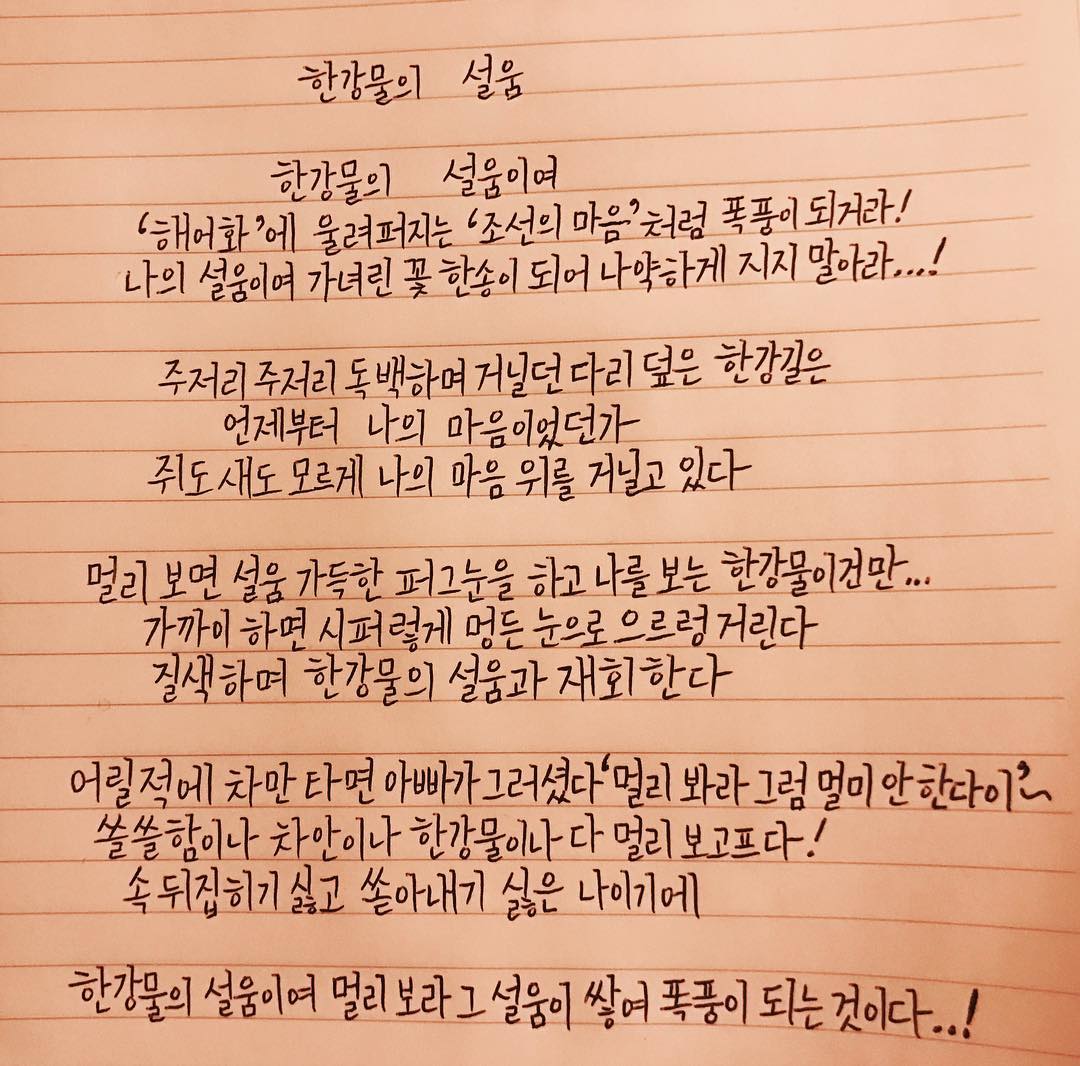 한강물의 설움
한강물의 설움이여
'해어화'에 울려퍼지는 '조선의 마음'처럼 폭풍이 되거라!
나의 설움이여 가녀린 꽃 한송이 되어 나약하게 지지 말아라...!
주저리 주저리 독백하며 거닐던 다리 덮은 한강길은
언제부터 나의 마음이었던가
쥐도 새도 모르게 나의 마음 위를 거닐고 있다
멀리 보면 설움 가득한 퍼그눈을 하고 나를 보는 한강물이건만...
가까이 하면 시퍼렇게 멍든 눈으로 으르렁 거린다
질색하며 한강물의 설움과 재회한다
어릴적에 차만 타면 아빠가 그러셨다 '멀리 봐라 그럼 멀미 안 한다이'~
쓸쓸함이나 차안이나 한강물이나 다 멀리 보고프다!
속 뒤집히기 싫고 쏟아내기 싫은 나이기에
한강물의 설움이여 멀리 보라 그 설움이 쌓여 폭풍이 되는 것이다...!